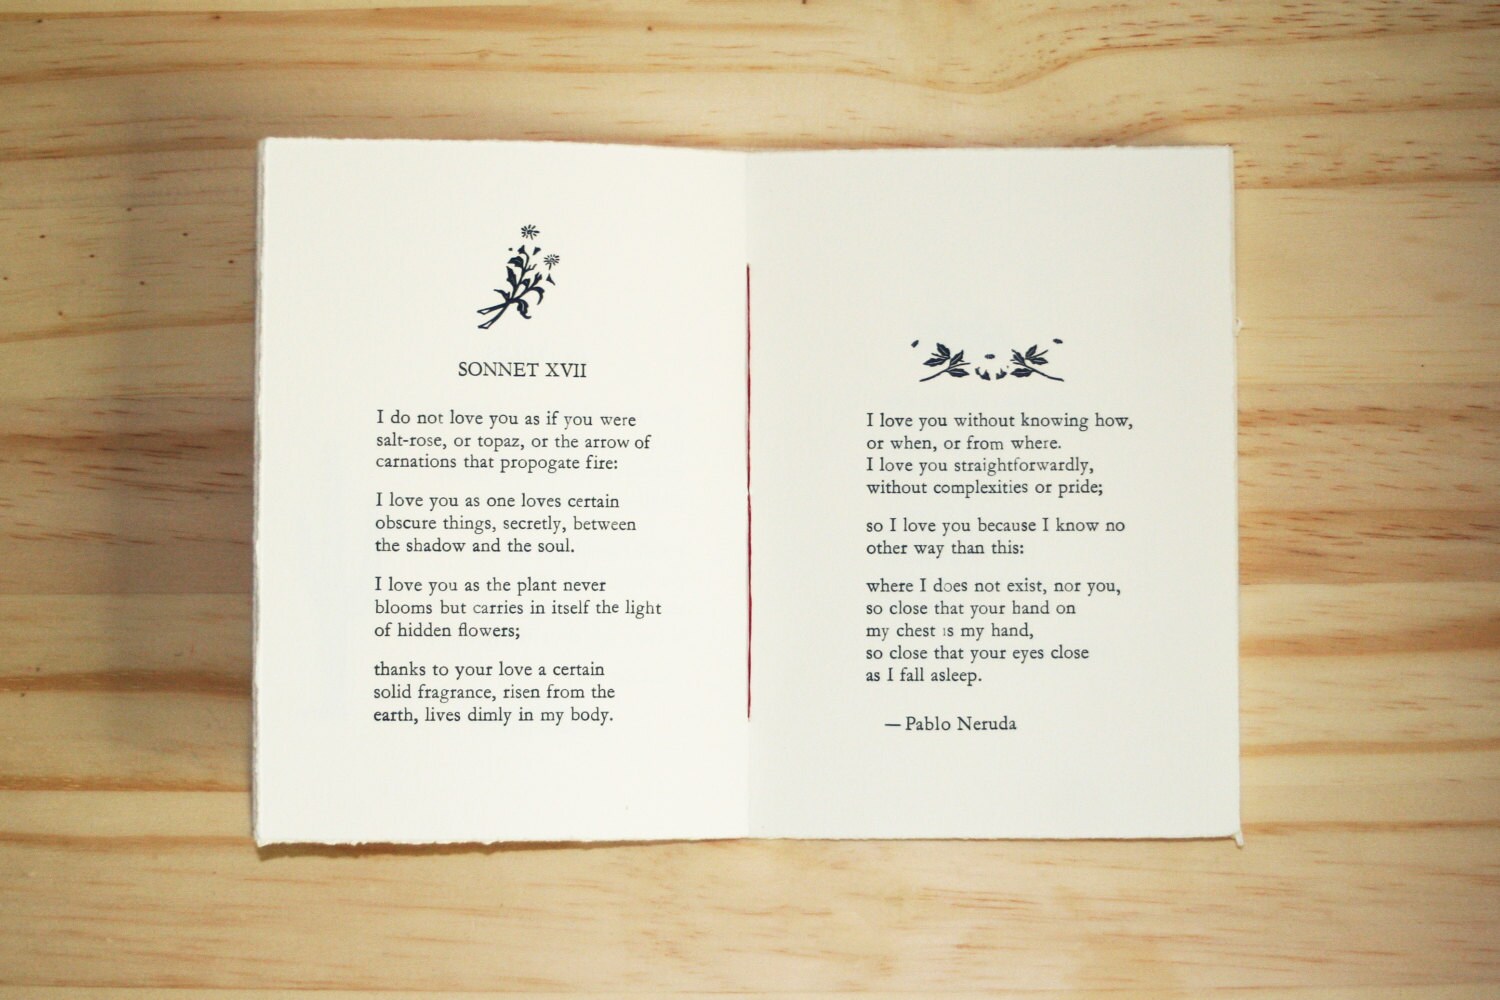 SONNET XVII
I do not love you as if you were
salt-rose, or topaz, or the arrow of
carnations that propogate fire:
I love you as one loves certain
obscure things, secretly, between
the shadow and the soul.
I love you as the plant never
blooms but carries in itself the light
of hidden flowers;
thanks to your love a certain
solid fragrance, risen from the
earth, lives dimly in my body.
I love you without knowing how,
or when, or from where.
I love you straightforwardly,
without complexities or pride;
so I love you because I know no
other way than this:
where I does not exist, nor you,
so close that your hand on
my chest is my hand,
so close that your eyes close
as I fall asleep.
—Pablo Neruda